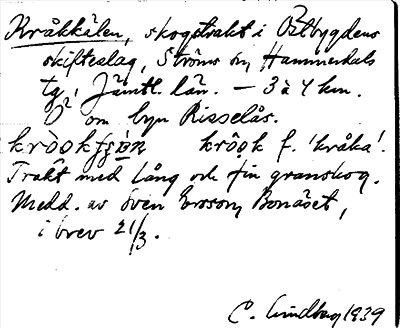 Kråkkälen, skogstrakt i Östbygdens
skifteslag, Ströms sn, Hammerdals
tg, Jämtl. län. — 3 à 4 km.
om byn Risselås.
krôok f. 'kråka'.
Trakt med lång och fin granskog.
Medd. av Sven Ersson, Bonäset,
i brev 21/3.
C. Lindberg 1939